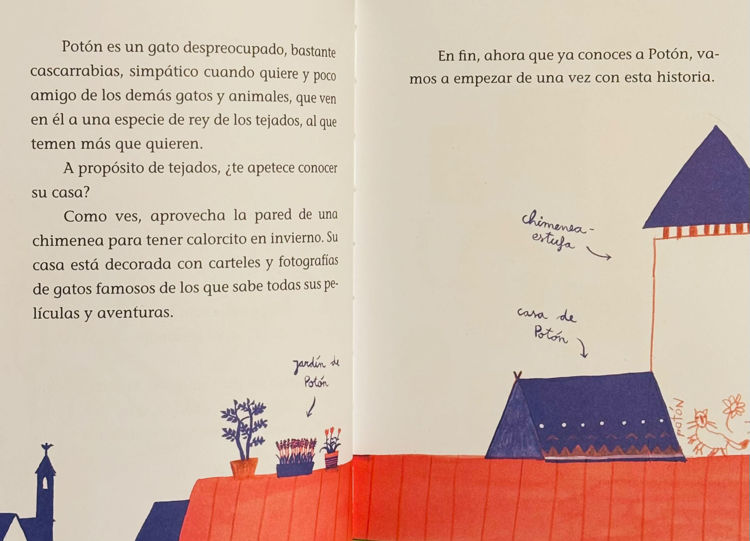 Potón es un gato despreocupado, bastante
cascarrabias, simpático cuando quiere y poco
amigo de los demás gatos y animales, que ven
en él a una especie de rey de los tejados, al que
temen más que quieren.
A propósito de tejados, ¿te apetece conocer
su casa?
Como ves, aprovecha la pared de una
chimenea para tener calorcito en invierno. Su
casa está decorada con carteles y fotografías
de gatos famosos de los que sabe todas sus pe-
lículas y aventuras.
jardín de
Potón
En fin, ahora que ya conoces a Potón, va-
mos a empezar de una vez con esta historia.
chimenea-
estufa
casa de
Potón
POTÓN